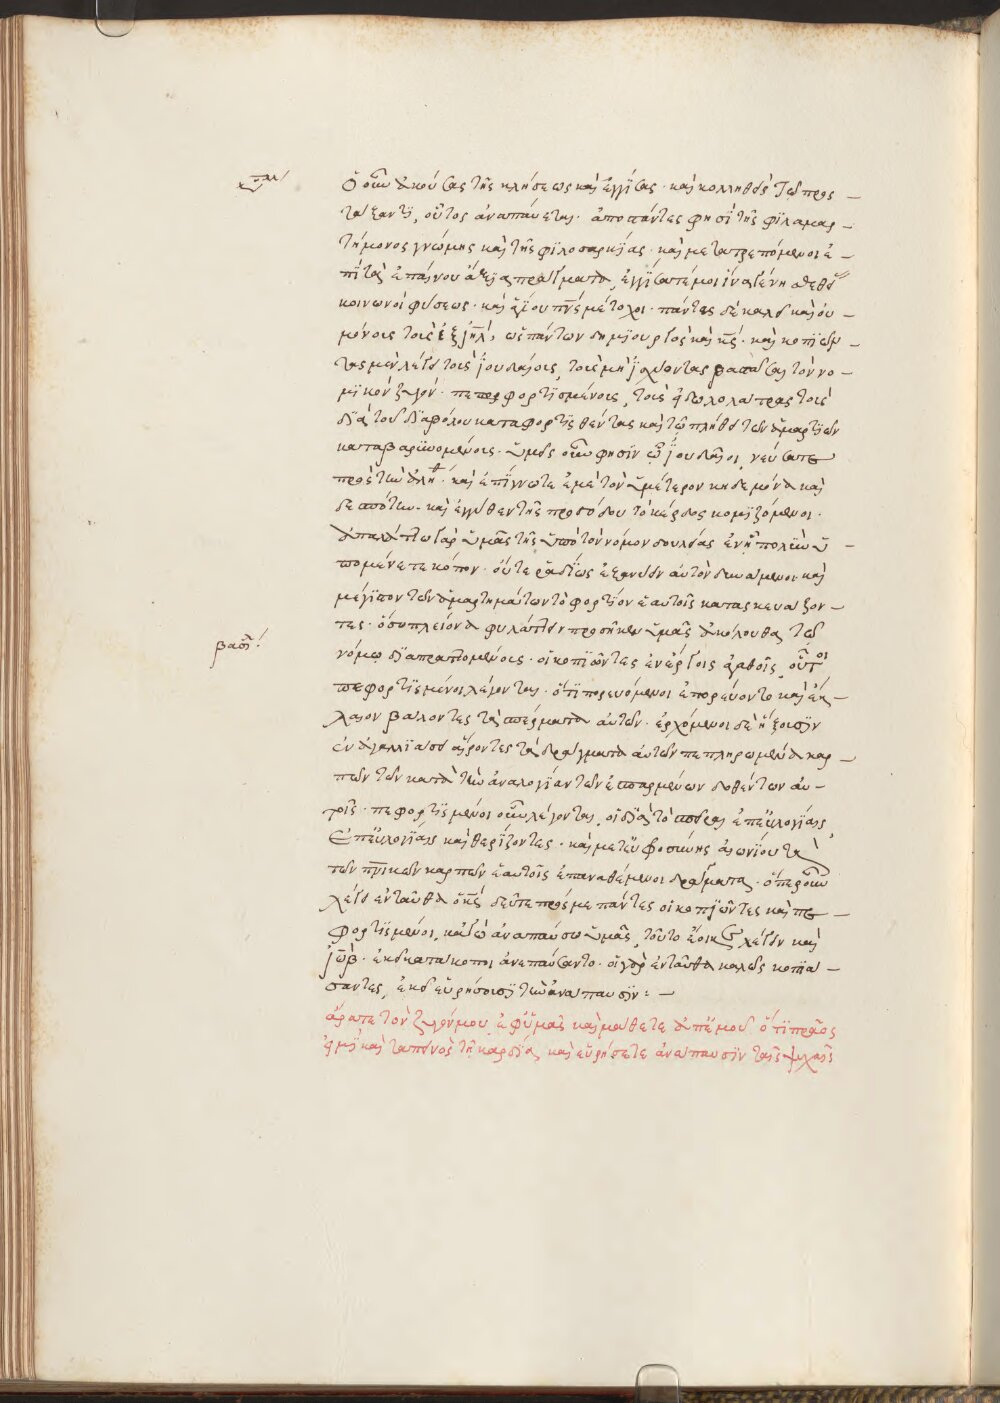 Ὁ οὖν ἀκούσας τῆς κλήσεως καὶ ἐγγίσας· καὶ κολληθεὶς τῷ προσ-
τάξαντι, οὗτος ἀναπαύεται· ἀποστάντες φησὶ τῆς φιλαμαρ-
τήμονος γνώμης καὶ τῆς φιλοσαρκίας· καὶ μετατρεπόμενοι ἐ-
πὶ τὰ ἐπαίνου ἄξια πράγματα, ἐγγίσατέ μοι ἵνα γένησθε θείας
κοινωνοὶ φύσεως· καὶ ἁγίου πνς μέτοχοι· πάντας δὲ καλεῖ καὶ οὐ
μόνους τοὺς ἐξ ιηλ, ὡς πάντων δημιουργὸς καὶ κς· καὶ κοπιῶν-
τας μὲν λέγει τοὺς ἰουδαίους, τοὺς μὴ ἰσχύοντας βαστάσαι τὸν νο-
μικὸν ζυγόν· πεφορτισμένους, τοὺς εἰδωλολάτρας τοὺς
διὰ τοῦ διαβόλου καταφορτισθέντας καὶ τῷ πλήθει τῶν ἁμαρτιῶν
καταβαρυνομένους· ὑμεῖς οὖν φησιν ὦ ἰουδαῖοι, νεύσατε
πρὸς τὴν ἀλή· καὶ ἐπίγνωτε ἐμὲ τὸν ὑμέτερον κηδεμόνα καὶ
δεσπότην· καὶ ἐγγύθεν τῆς προσόδου τὸ κέρδος κομιζόμενοι·
ἀπαλάττω γὰρ ὑμᾶς τῆς ὑπὸ τὸν νόμον δουλείας ἐν ᾗ πολὺν ὑ-
πομένετε κόπον· οὔτε ῥᾳδίως ἐξανύειν αὐτὸν δυνάμενοι καὶ
μέγιστον τῶν ἁμαρτημάτων τὸ φορτίον ἑαυτοῖς κατασκευάζον-
τες· ὅσῳ πλείονα φυλάττειν προσῆκεν ὑμᾶς ἀκόλουθα τῷ
νόμῳ διαπραττομένους· οἱ κοπιῶντες ἐν ἔργοις ἀγαθοῖς, οὗτοι
πεφορτισμένοι λέγονται· ὅτι πορευόμενοι ἐπορεύοντο καὶ ἔκ-
λαιον βάλοντες τὰ σπέρματα αὐτῶν· ἐρχόμενοι δὲ ἥξουσιν
ἐν ἀγαλλιάσει αἴροντες τὰ δράγματα αὐτῶν πεπληρωμένα καρ-
πῶν τῶν κατὰ τὴν ἀναλογίαν τῶν ἐσπαρμένων δοθέντων αὐ-
τοῖς· πεφορτισμένοι οὖν λέγονται, οἱ διὰ τὸ σπεῖραι ἐπ' εὐλογίαις
ἐπ' εὐλογίαις καὶ θερίζοντες· καὶ μετ' εὐφροσύνης αἰωνίου τὰ
τῶν πνικῶν καρπῶν ἑαυτοῖς ἐπαναθέμενοι δράγματα· ὅπερ οὖν
λέγει ἐνταῦθα ὁ κς δεῦτε πρός με πάντες οἱ κοπιῶντες καὶ πε-
φορτισμένοι, κἀγὼ ἀναπαύσω ὑμᾶς, τοῦτο ἔοικε λέγειν καὶ
ἰώβ· ἐκεῖ κατάκοποι ἀνεπαύσαντο· οἱ γὰρ ἐνταῦθα καλῶς κοπιά-
σαντες, ἐκεῖ εὑρήσουσι τὴν ἀνάπαυσιν:-
ἄρατε τὸν ζυγόν μου ἐφ' ὑμᾶς καὶ μάθετε ἀπ' ἐμοῦ· ὅτι πρᾶος
εἰμὶ καὶ ταπεινὸς τῇ καρδίᾳ, καὶ εὑρήσετε ἀνάπαυσιν ταῖς ψυχαῖς
βασιλ